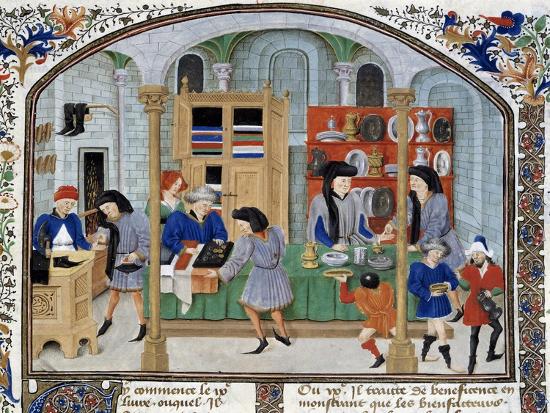 Cy commence le ixe
livre ouquel Il
Ou ixe. Il traitte de beneficence en
monstrant que les bienfaitteurs.